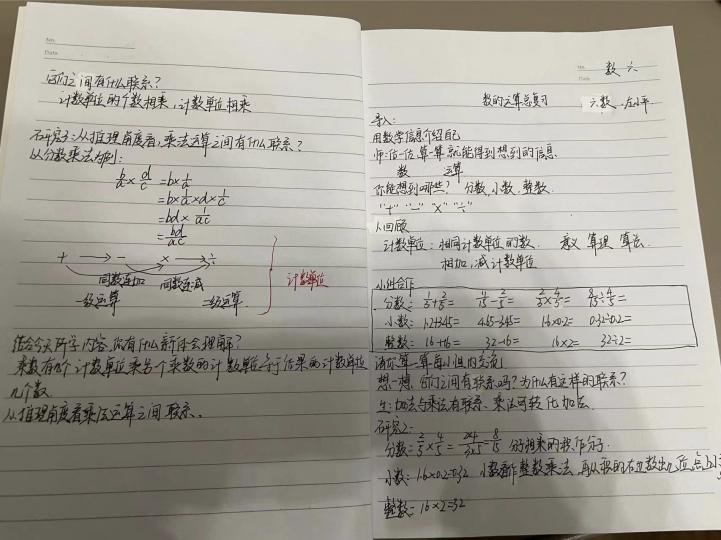 它们之间有什么联系?
计数单位的个数相乘,计数单位相乘
研究3:从推理角度看,乘法运算之间有什么联系?
以分数乘法为例:
b/a × d/c = b×1/a
= b×1/a×d×1/c
= bd× 1/ac
= bd/ac
+ → - × → ÷
同数连加 同数连减
一级运算 二级运算
计数单位
结合今天所学内容,你有什么新体会理解?
乘数有几个计数单位乘另个乘数的计数单位等于结果的计数单位
几个数
从推理角度看乘法运算之间联系。
No.
Date
No.
Date
数 六
数的运算总复习 六.数 左小平
导入:
用数学信息介绍自己
师:估一估,算一算就能得到想到的信息
数 运算
你能想到哪些? 分数,小数,整数
"+" "-" "×" "÷"
1.回顾
计数单位:相同计数单位的数. 意义 算理 算法.
相加,减计数单位
小组合作
分数:1/3+2/5= 11/15-2/5= 2/3×4/5= 8/15÷4/5=
小数:1.2+3.45= 4.65-3.45= 1.6×0.2= 0.32÷0.2=
整数:16+16= 32-16= 16×2= 32÷2=
请你算一算每小组内交流
想一想,它们之间有联系吗?为什么有这样的联系?
生:加法与乘法有联系.乘法可转化加法.
研究2:
分数:2/3×4/5=2×4/3×5=8/15 分子相乘的积作分子.
小数:1.6×0.2=0.32 小数看作整数乘法,再从积的右边数出几位点上小
整数:16×2=32